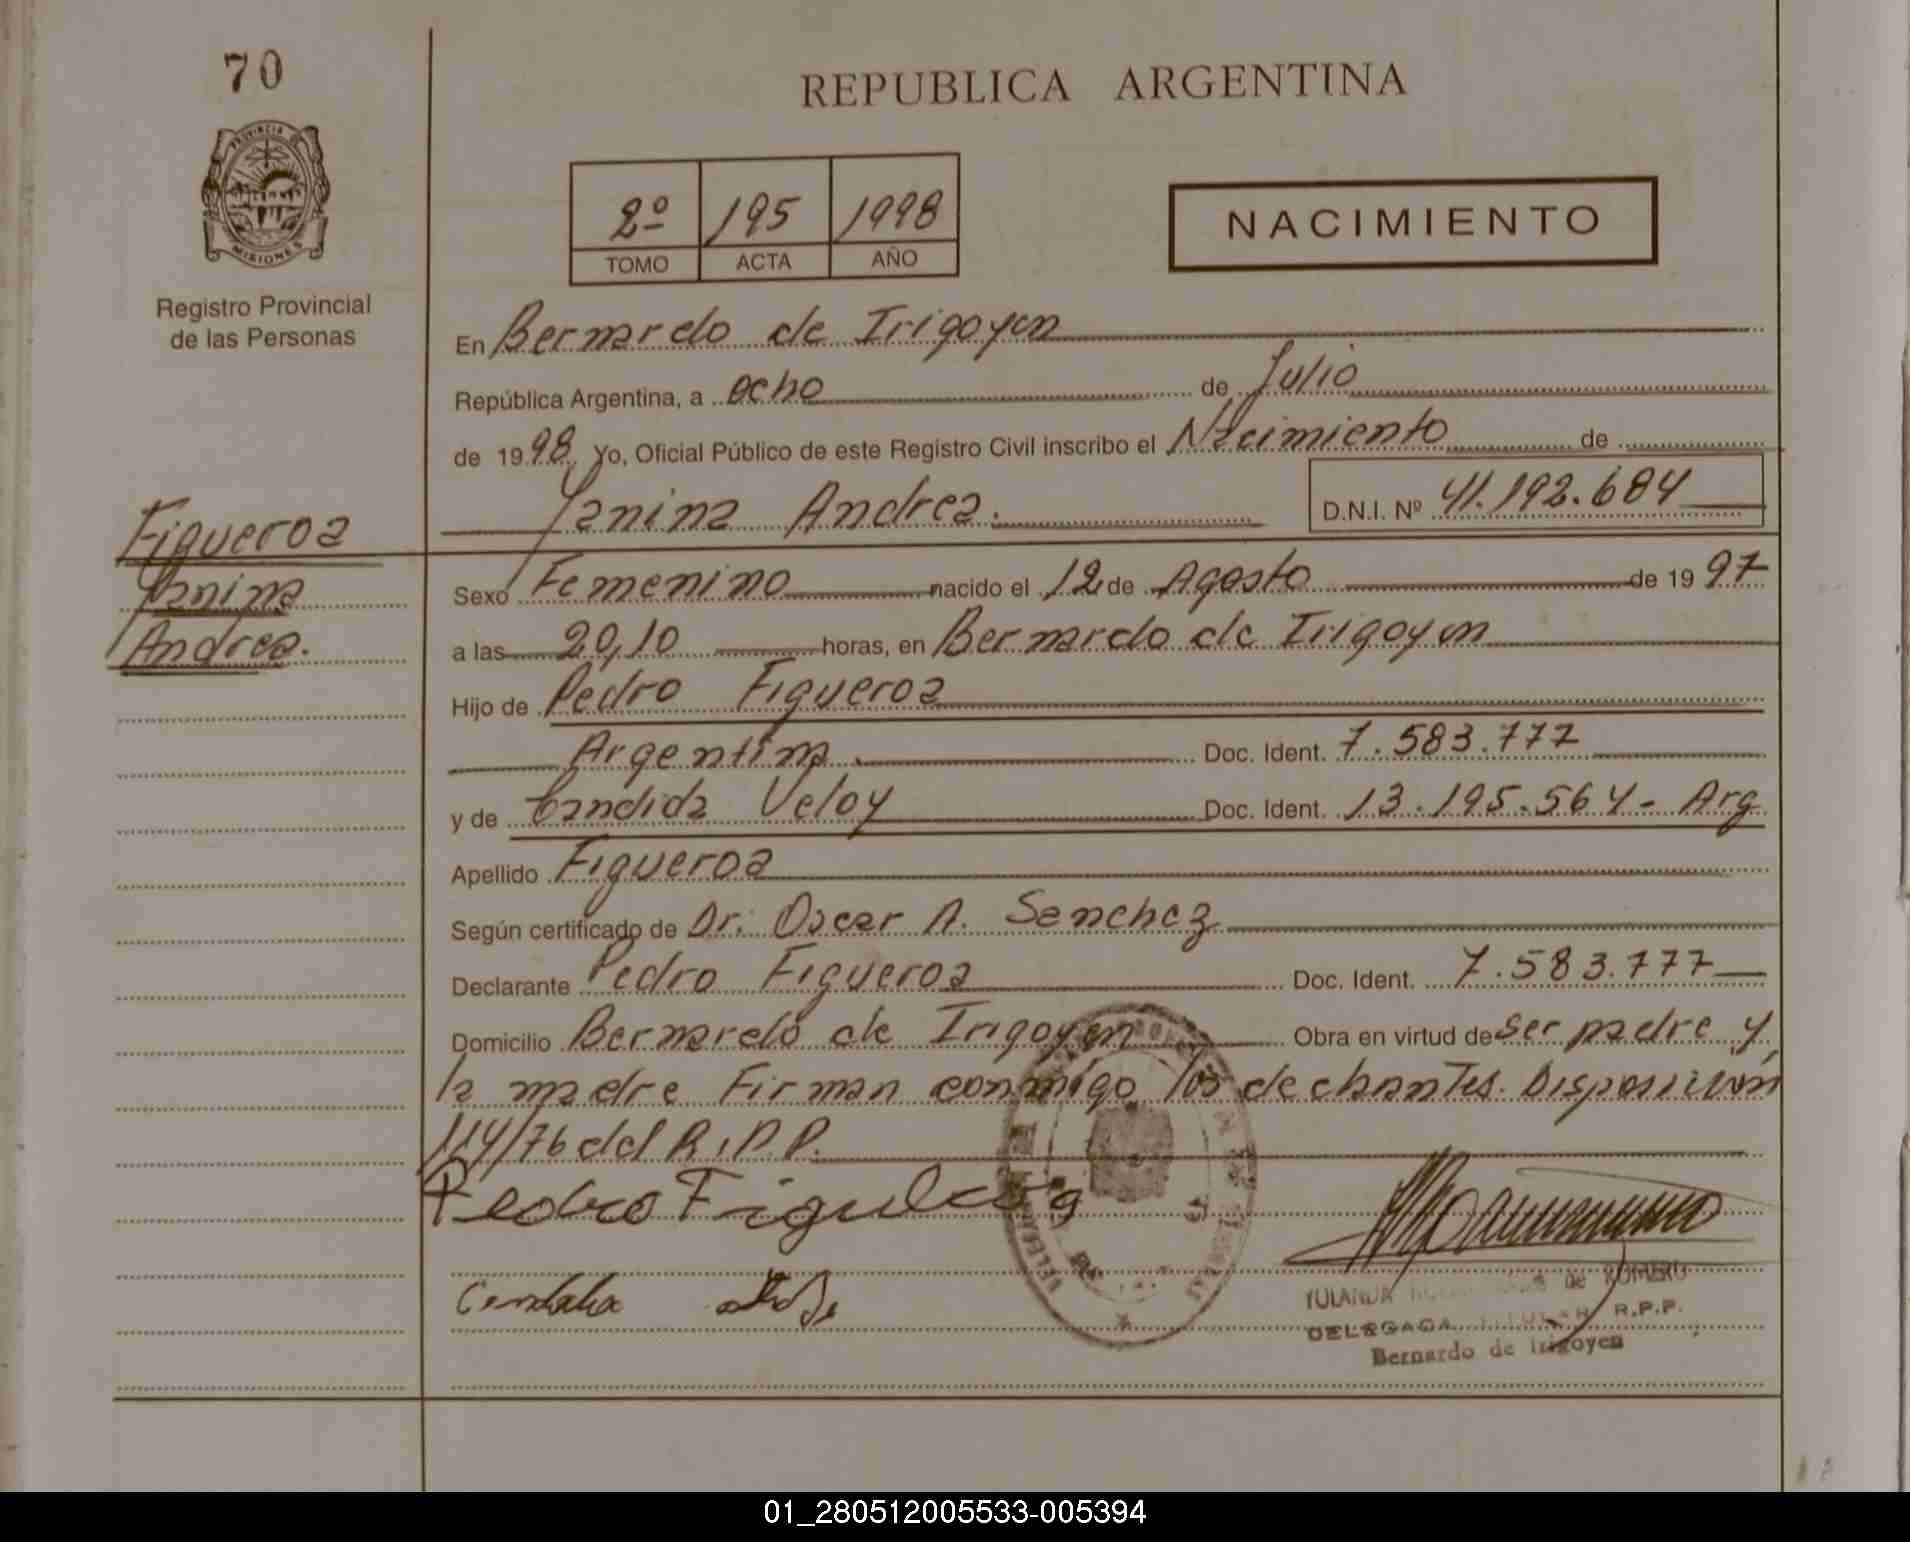 70
REPUBLICA ARGENTINA
PROVINCIA DE MISIONES
2º 195 1998
TOMO ACTA AÑO
NACIMIENTO
Registro Provincial
de las Personas
En Bernardo de Irigoyen
República Argentina, a ocho de Julio
de 1998 Yo, Oficial Público de este Registro Civil inscribo el Nacimiento de
Yanina Andrea. D.N.I. Nº 41.192.684
Figueroa
Yanina
Andrea.
Sexo Femenino nacido el 12 de Agosto de 1997
a las 20,10 horas, en Bernardo de Irigoyen
Hijo de Pedro Figueroa
Argentina. Doc. Ident. 7.583.777
y de Candida Veloy Doc. Ident. 13.195.564- Arg
Apellido Figueroa
Según certificado de Dr: Oscar A. Sanchez
Declarante Pedro Figueroa Doc. Ident. 7.583.777
Domicilio Bernardo de Irigoyen Obra en virtud de ser padre y
la madre Firman conmigo los declarantes. Disposición
114/76 del R.P.P.
Pedro Figueroa
de ROMERO
DELEGADA TITULAR R.P.P.
Bernardo de Irigoyen
01_280512005533-005394